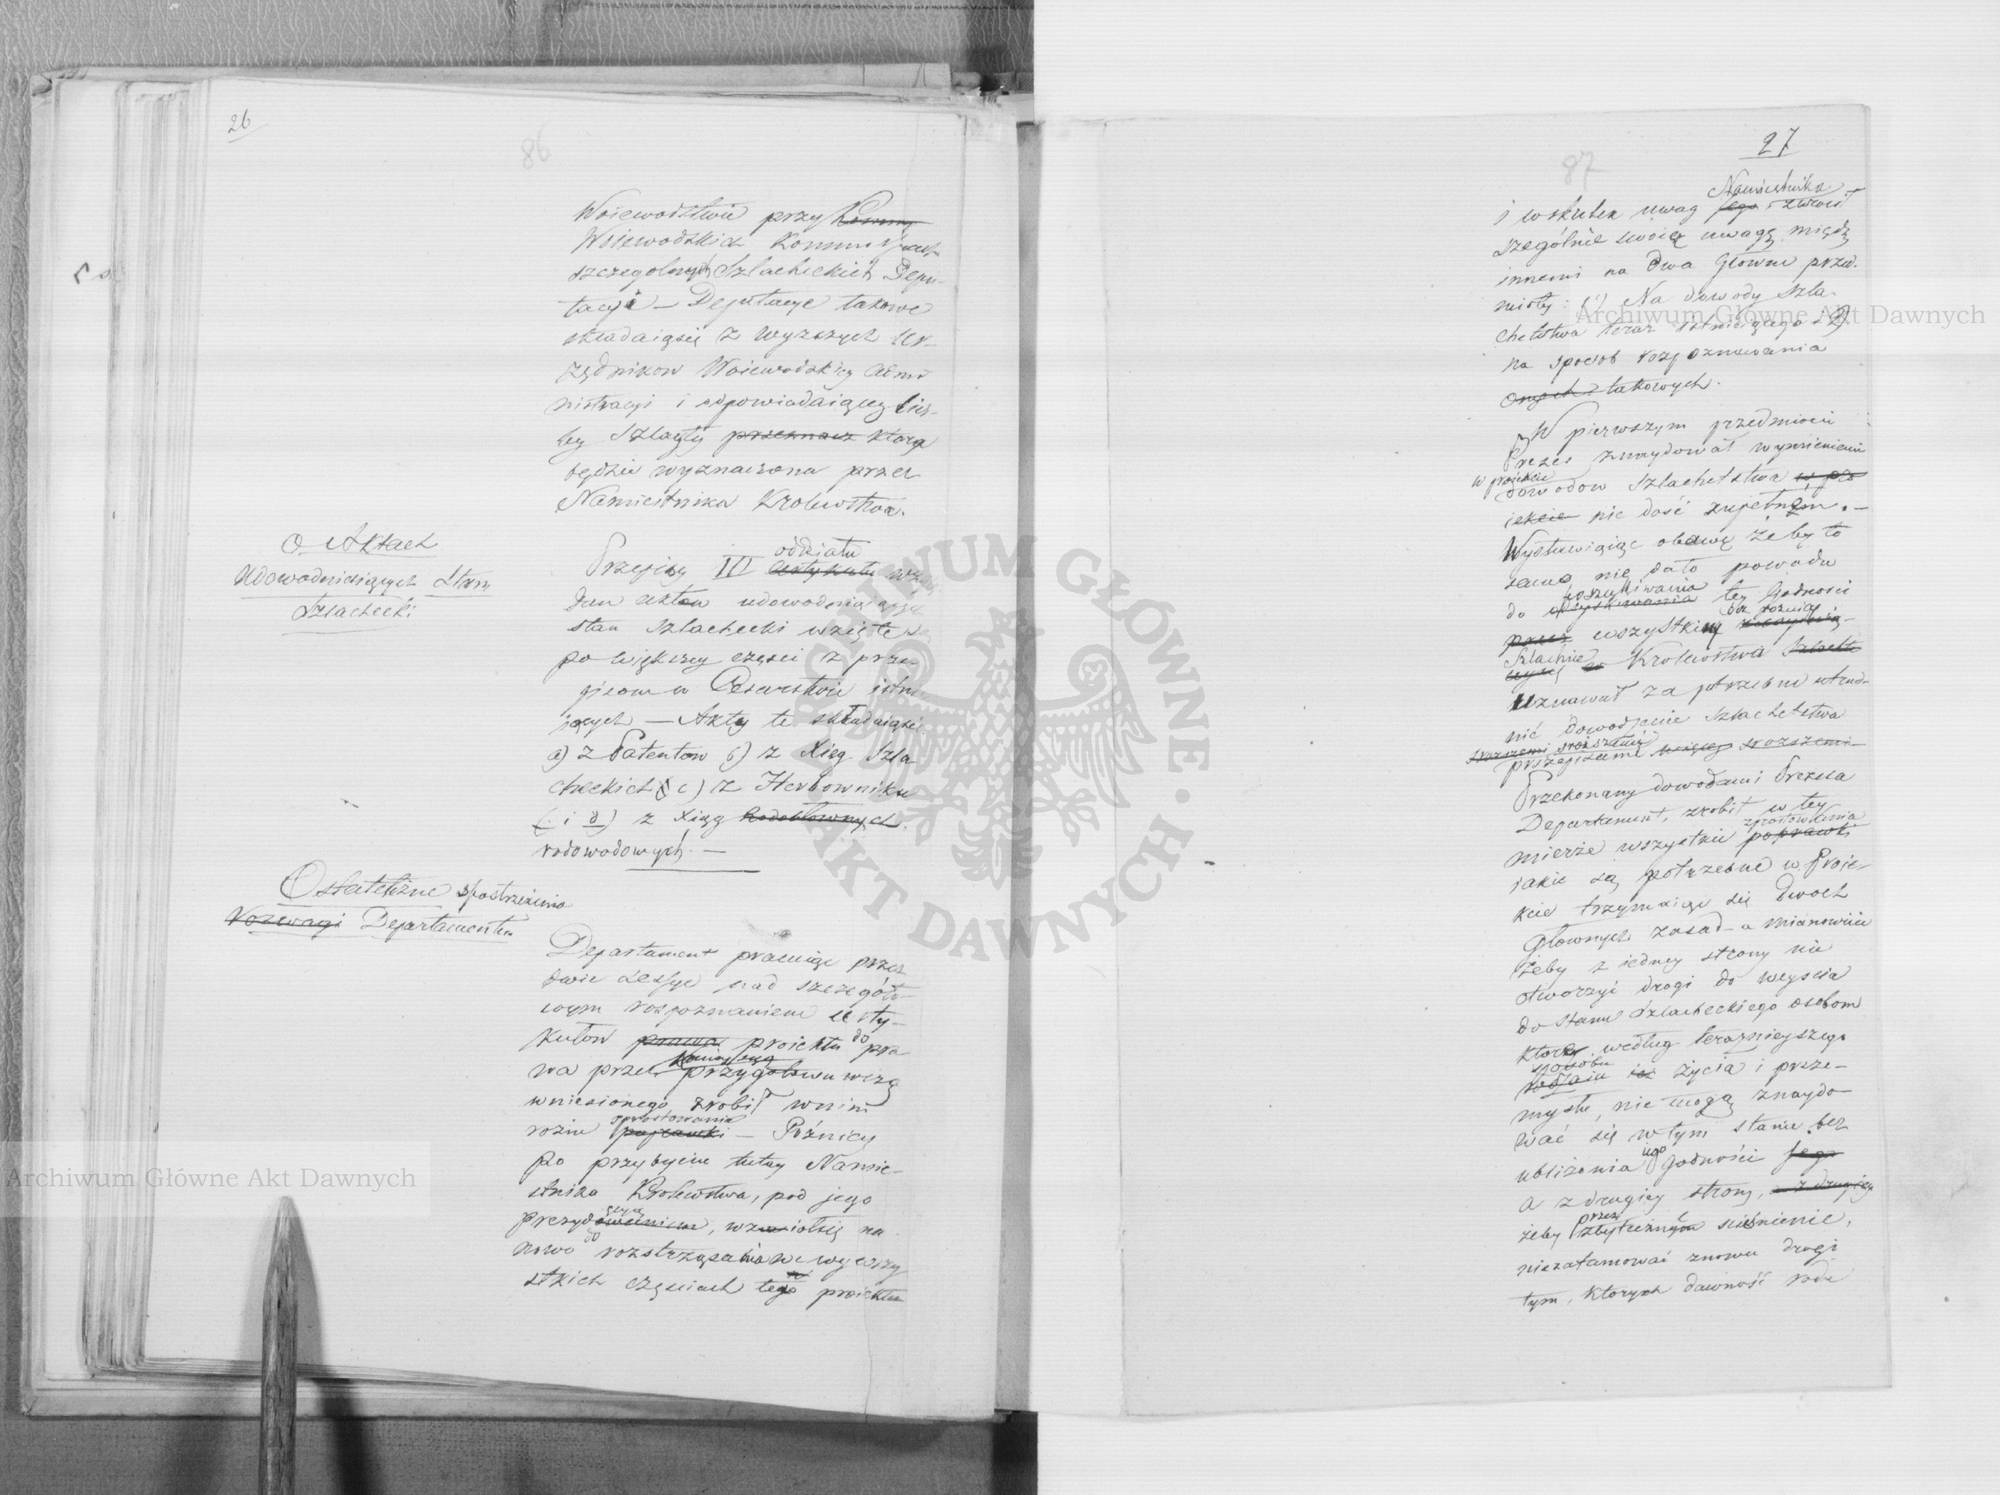 26
86
Woiewodztwie przy Kommis
Woiewodzkich Kommissyach
szczególnych Szlacheckich Depu-
tacyi – Deputacye takowe
składaiąsię z wyższych Ur-
zędnikow Woiewodzkiey Admi
nistracyi i odpowiadaiącey licz-
by Szlachty przeznacz ktora
będzie wyznaczona przez
Namiestnika Krolewstwa.
O Aktach
udowodniaiących Stan
Szlachecki
Przepisy III oddziału Artykułu wzglę
dem aktow udowodniaiących
stan szlachecki wzięte są
po większey części z prze-
pisow w Cesarstwie istnie
jących – Akty te składaiąsię
a) z Patentow b) z Xiąg Szla
checkich c) z Herbownika
( i d) z Xiąg Rodosłownych
rodowodowych. –
Ostateczne spostrzeżenia
Rozwagi Departamentu
Departament pracuiąc przez
dwie Sessye nad szczegóło-
wym rozpoznaniem arty-
kułow prawa proiektu do pra
wa przez Kommissyą przygotowawczą
wniesionego zrobił w nim
rożne sprostowania poprawki – Póżniey
po przybyciu tutay Namie-
stnika Krolewstwa, pod jego
prezydencyą, wziołsię na
nowo do rozstrząsania we wszy
stkich częściach tego proiektu
27
87
Namiestnika
i wskutek uwag Jego zwrocił
szczególnie swoię uwagę między
innemi na dwa Głowne przed-
mioty: 1) Na dowody Szla-
chetstwa teraz istnieiącego i 2)
na sposob rozpoznawania
onych takowych.
W pierwszym przedmiocie
Prezes znaydował wymienienie
w projekcie
dowodow Szlachetstwa w pro
iekcie nie dość zupełnem. –
Wystawiaiąc obawę żeby to
samo nie dało powodu
poszukiwania
do odzyskiwania tey Godności
bez rożnicy
przez wszystkiey
Szlachcie Krolewstwa
Uznawał za potrzebne utrud-
nić dowodzenie Szlachetstwa
przepisami więcey
Przekonany dowodami Prezesa
Departament, zrobił w tey
sprostowania
mierze wszystkie poprawki
jakie są potrzebne w Proie-
kcie trzymaiąc się dwoch
Głownych zasad – a mianowicie
żeby z iedney strony nie
otworzyć drogi do weyścia
do stanu Szlacheckiego osobom
ktore według teraznieyszego
sposobu
rodzaiu życia i prze-
mysłu, nie mogą znaydo-
wać się w tym stanie bez
ubliżenia iego godności Jego
a z drugiey strony, z drugiey
przez
żeby zbyteczne ścieśnienie,
niezatamować znowu drogi
tym, ktorych dawność rodu
Archiwum Główne Akt Dawnych
Archiwum Główne Akt Dawnych
ARCHIWUM GŁÓWNE · AKT DAWNYCH ·